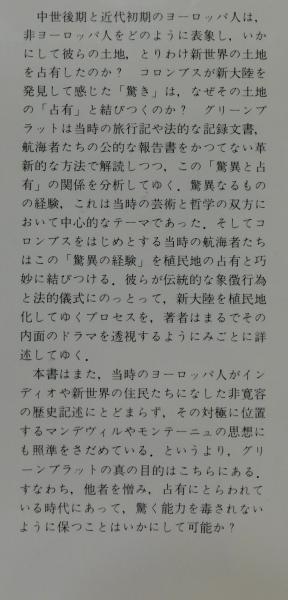 中世後期と近代初期のヨーロッパ人は，
非ヨーロッパ人をどのように表象し，いか
にして彼らの土地，とりわけ新世界の土地
を占有したのか？　コロンブスが新大陸を
発見して感じた「驚き」は，なぜその土地
の「占有」と結びつくのか？　グリーンブ
ラットは当時の旅行記や法的な記録文書，
航海者たちの公的な報告書をかつてない革
新的な方法で解読しつつ，この「驚異と占
有」の関係を分析してゆく．驚異なるもの
の経験，これは当時の芸術と哲学の双方に
おいて中心的なテーマであった．そしてコ
ロンブスをはじめとする当時の航海者たち
はこの「驚異の経験」を植民地の占有と巧
妙に結びつける．彼らが伝統的な象徴行為
と法的儀式にのっとって，新大陸を植民地
化してゆくプロセスを，著者はまるでその
内面のドラマを透視するようにみごとに詳
述してゆく．
本書はまた，当時のヨーロッパ人がイン
ディオや新世界の住民たちになした非寛容
の歴史記述にとどまらず，その対極に位置
するマンデヴィルやモンテーニュの思想に
も照準をさだめている．というより，グリ
ーンブラットの真の目的はこちらにある．
すなわち，他者を憎み，占有にとらわれて
いる時代にあって，驚く能力を毒されない
ように保つことはいかにして可能か？